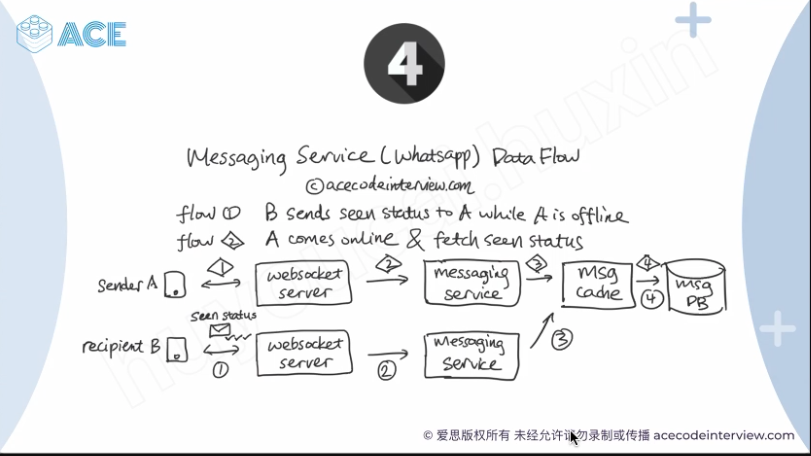 ACE
4
Messaging Service (Whatsapp) Data Flow
©acecodeinterview.com
flow ① B sends seen status to A while A is offline
flow 2 A comes online & fetch seen status
1 2 3 4
sender A websocket server messaging service msg cache msg DB
④
seen status
recipient B websocket server messaging service ③
① ②
© 爱思版权所有 未经允许 勿录制或传播 acecodeinterview.com